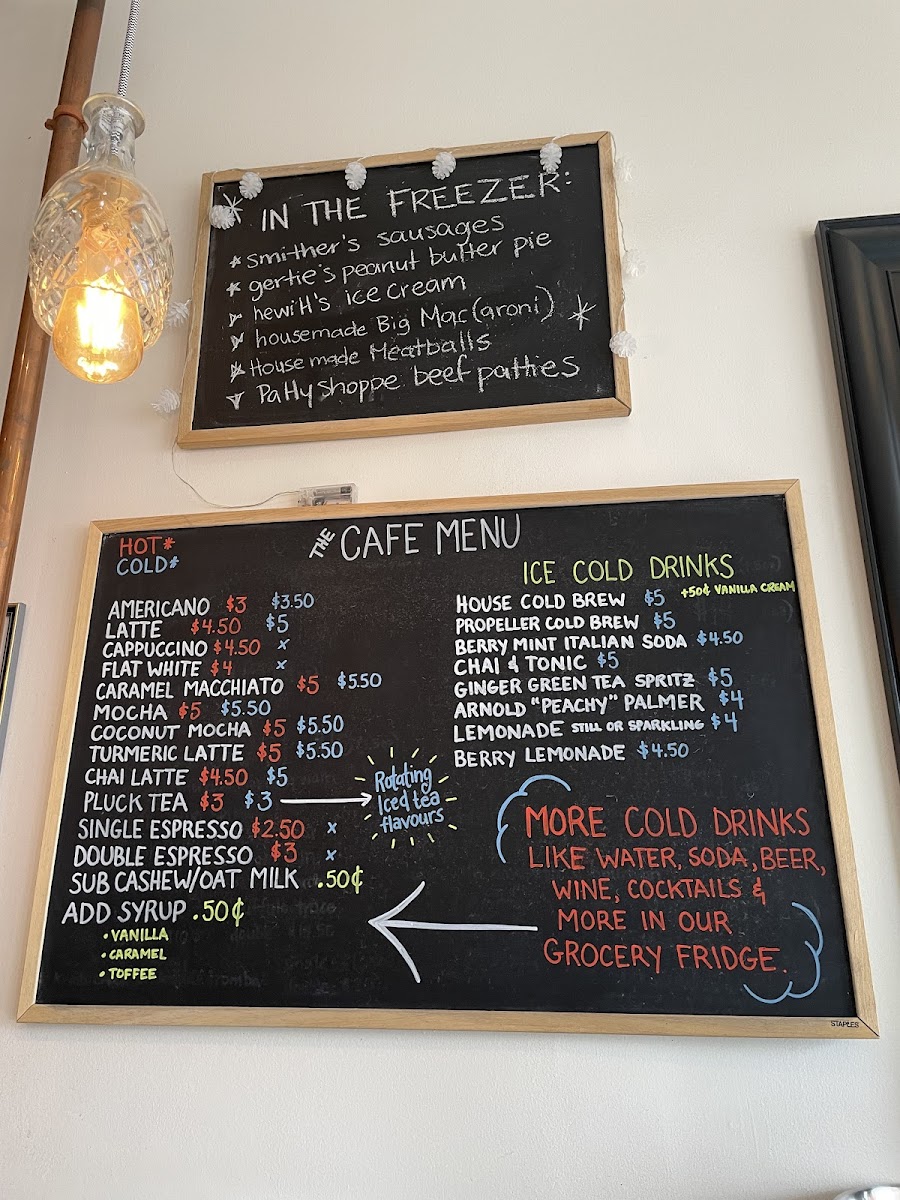 IN THE FREEZER:
smither's sausages
gertie's peanut butter pie
hewitt's ice cream
housemade Big Mac(aroni)
House made Meatballs
Patty shoppe beef patties
HOT*
COLD*
THE CAFE MENU
AMERICANO $3 $3.50
LATTE $4.50 $5
CAPPUCCINO $4.50 x
FLAT WHITE $4 x
CARAMEL MACCHIATO $5 $5.50
MOCHA $5 $5.50
COCONUT MOCHA $5 $5.50
TURMERIC LATTE $5 $5.50
CHAI LATTE $4.50 $5
PLUCK TEA $3 $3
Rotating
Iced tea
flavours
SINGLE ESPRESSO $2.50 x
DOUBLE ESPRESSO $3 x
SUB CASHEW/OAT MILK .50¢
ADD SYRUP .50¢
• VANILLA
• CARAMEL
• TOFFEE
ICE COLD DRINKS
HOUSE COLD BREW $5 +50¢ VANILLA CREAM
PROPELLER COLD BREW $5
BERRY MINT ITALIAN SODA $4.50
CHAI & TONIC $5
GINGER GREEN TEA SPRITZ $5
ARNOLD "PEACHY" PALMER $4
LEMONADE STILL OR SPARKLING $4
BERRY LEMONADE $4.50
MORE COLD DRINKS
LIKE WATER, SODA, BEER,
WINE, COCKTAILS &
MORE IN OUR
GROCERY FRIDGE.
STAPLES